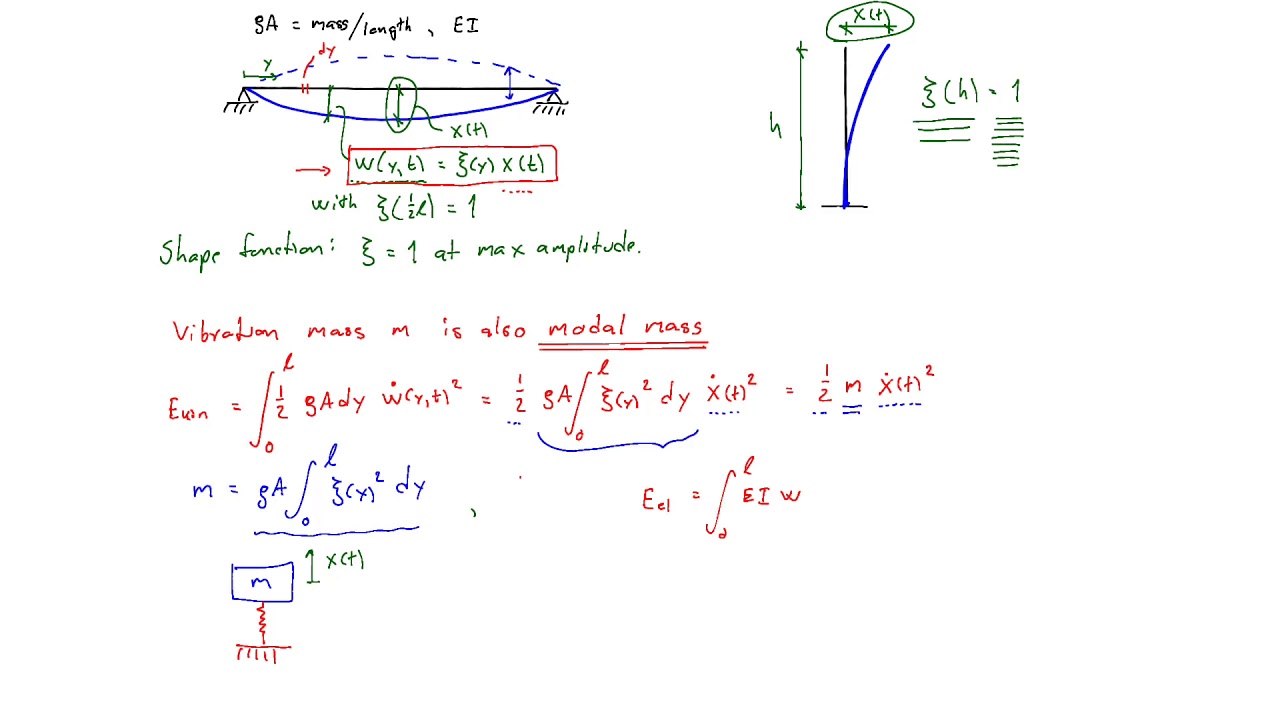 ϱA = mass/length , EI
dy
y
x(t)
w(y,t) = ξ(y) x(t)
with ξ(½l) = 1
Shape function: ξ = 1 at max amplitude.
x(t)
h
ξ(h) = 1
Vibration mass m is also modal mass
Ekin = ∫₀ˡ ½ ϱA dy ẇ(y,t)² = ½ ϱA ∫₀ˡ ξ(y)² dy ẋ(t)² = ½ m ẋ(t)²
m = ϱA ∫₀ˡ ξ(y)² dy ,
Eel = ∫₀ˡ EI w
x(t)
m